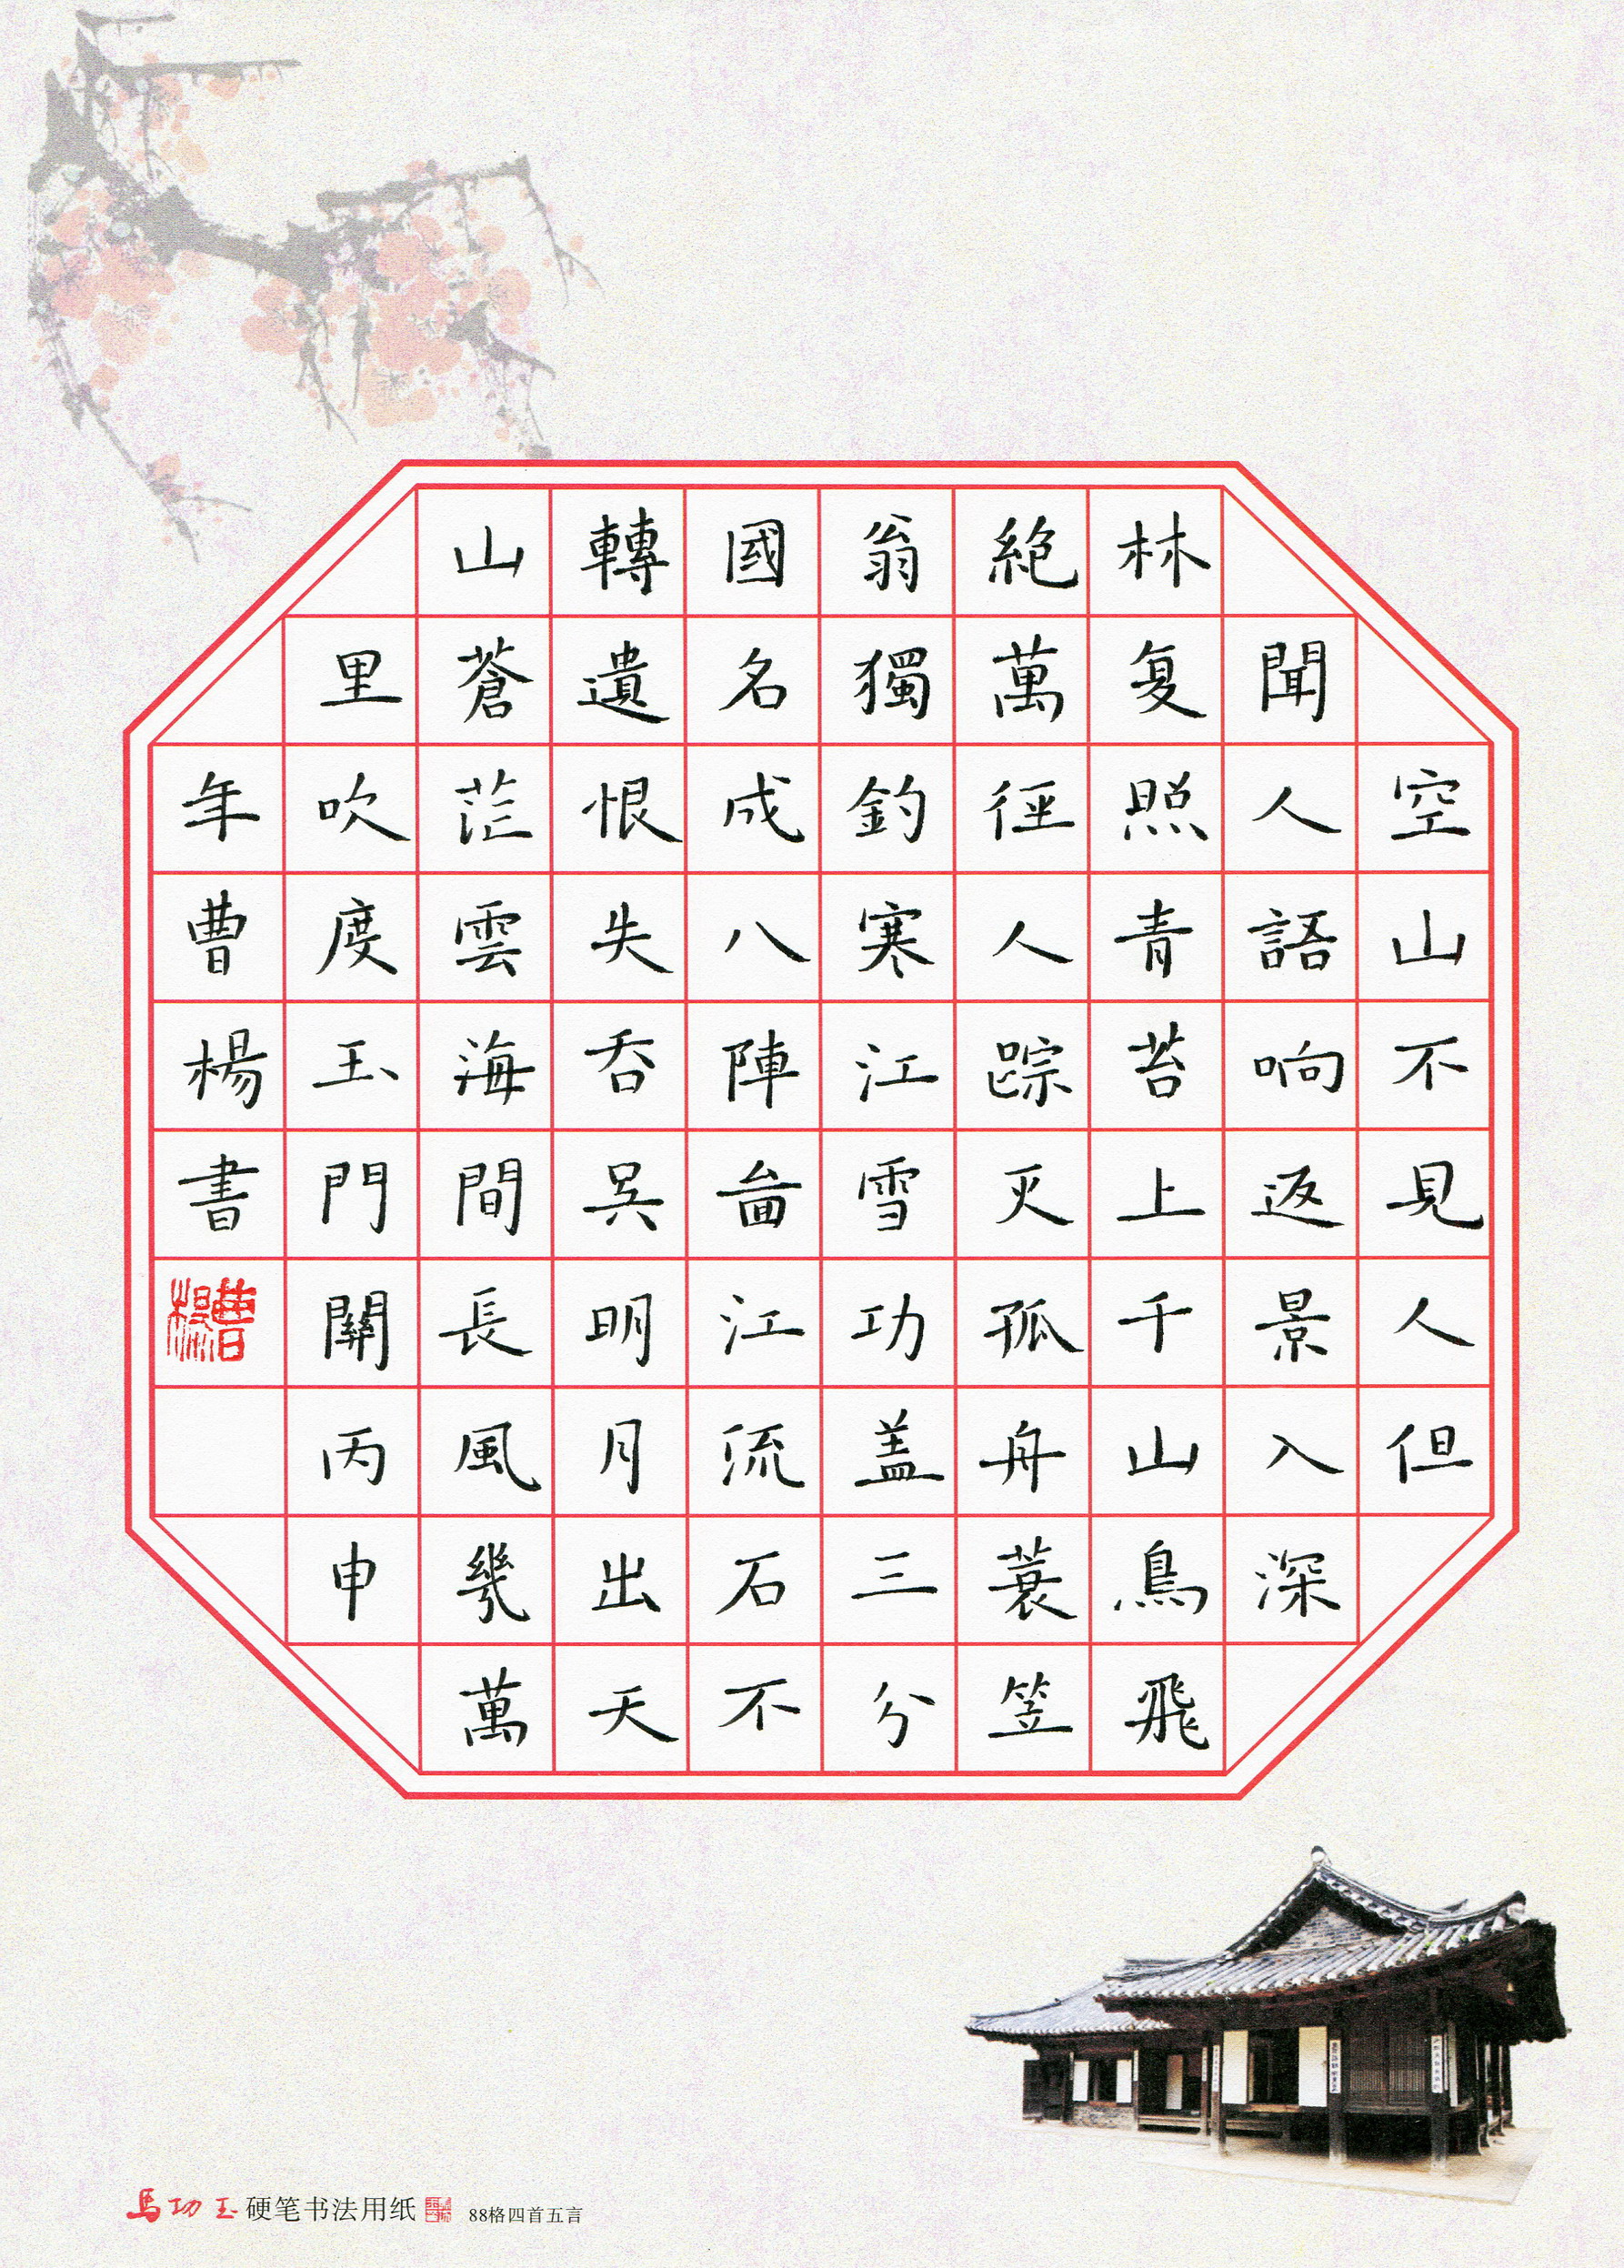 空山不見人但
聞人語响返景入深
林复照青苔上千山鳥飛
絕萬徑人踪灭孤舟蓑笠
翁獨釣寒江雪功盖三分
國名成八陣啚江流石不
轉遺恨失吞吴明月出天
山蒼茫雲海間長風幾萬
里吹度玉門關丙申
年曹楊書
曹楊
馬功玉硬笔书法用纸 88格四首五言